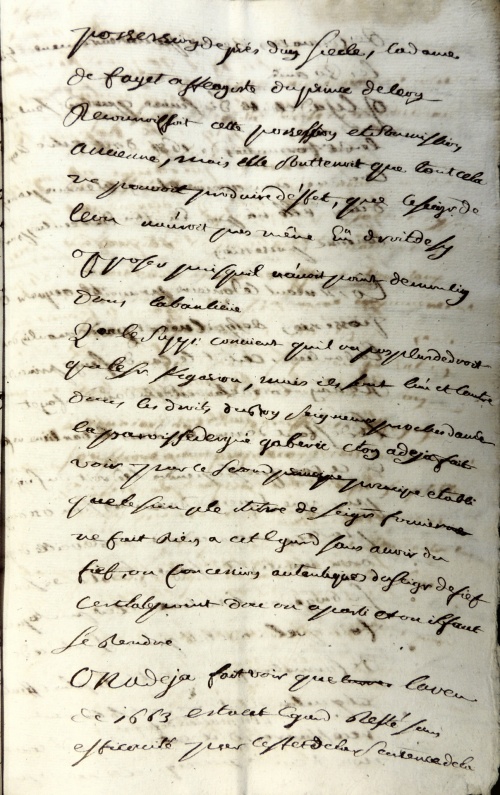 possession de près d'un siecle, la dame
de fayet affeagiste du prince de leon
Reconnoissoit cette possession et soumission
ancienne, mais elle soutenoit que tout cela
ne pouvoit produire d'effet, que le seigr de
leon n'avoit pas même un droit de s'y
opposer puisquil n'avoit point de moulin
dans la banlieüe
que le supp: convient quil n'a pas plus de droit
que le sr Kgariou, mais ils sont l'un et l'autre
dans les droits du Roy seigneur proche dans
la paroisse dergué gaberic et on a deja fait
voir par le second principe etabli
que le simple titre de seigr foncier
ne fait Rien a cet Egard sans avoir du
fief, ou concession autentique du seigr de fief
c'est la le point dou on a parti et ou il faut
se Rendre
On a deja fait voir que l'aveu
de 1663 est a cet Egard Resté sans
efficacité par l'effet de la sentence de la